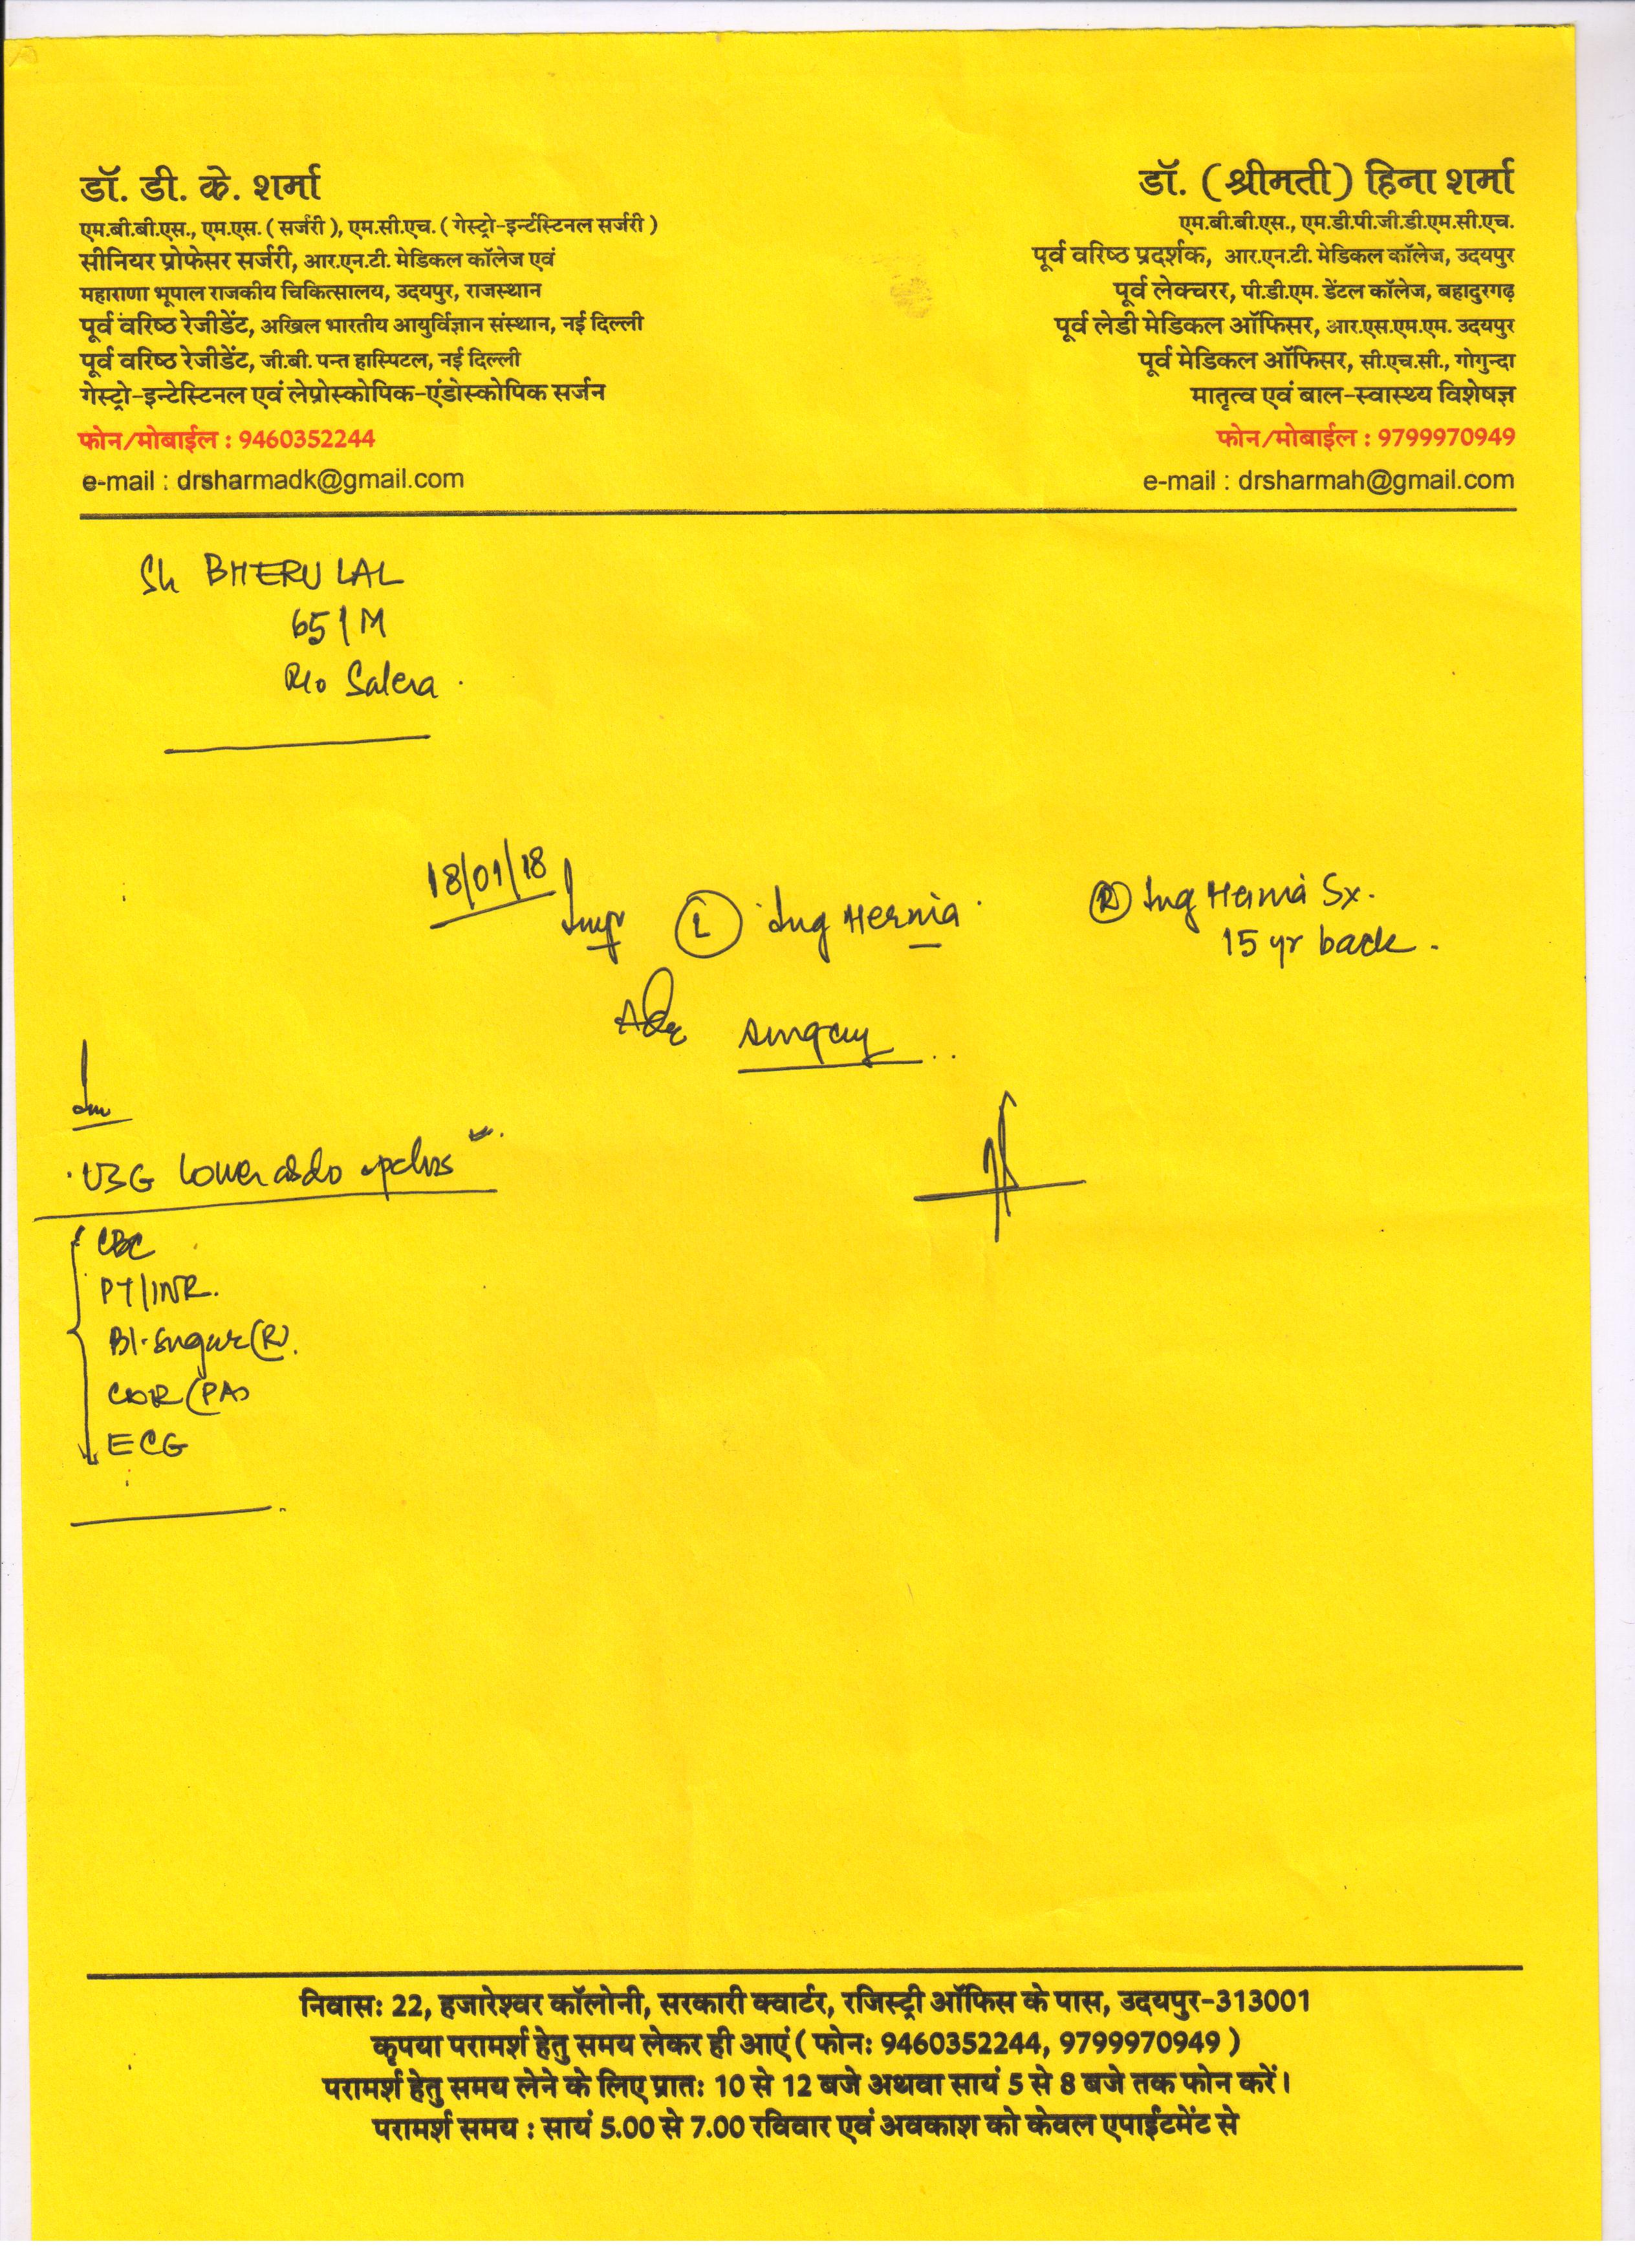 डॉ. डी. के. शर्मा
एम.बी.बी.एस., एम.एस. ( सर्जरी ), एम.सी.एच. ( गेस्ट्रो-इन्टेंस्टिनल सर्जरी )
सीनियर प्रोफेसर सर्जरी, आर.एन.टी. मेडिकल कॉलेज एवं
महाराणा भूपाल राजकीय चिकित्सालय, उदयपुर, राजस्थान
पूर्व वरिष्ठ रेजीडेंट, अखिल भारतीय आयुर्विज्ञान संस्थान, नई दिल्ली
पूर्व वरिष्ठ रेजीडेंट, जी.बी. पन्त हास्पिटल, नई दिल्ली
गेस्ट्रो-इन्टेस्टिनल एवं लेप्रोस्कोपिक-एंडोस्कोपिक सर्जन
फोन/मोबाईल : 9460352244
e-mail : drsharmadk@gmail.com
डॉ. ( श्रीमती ) हिना शर्मा
एम.बी.बी.एस., एम.डी.पी.जी.डी.एम.सी.एच.
पूर्व वरिष्ठ प्रदर्शक, आर.एन.टी. मेडिकल कॉलेज, उदयपुर
पूर्व लेक्चरर, पी.डी.एम. डेंटल कॉलेज, बहादुरगढ़
पूर्व लेडी मेडिकल ऑफिसर, आर.एस.एम.एम. उदयपुर
पूर्व मेडिकल ऑफिसर, सी.एच.सी., गोगुन्दा
मातृत्व एवं बाल-स्वास्थ्य विशेषज्ञ
फोन/मोबाईल : 9799970949
e-mail : drsharmah@gmail.com
Sh BHERU LAL
65/M
R/o Salera
18/01/18
Imp (L) Ing Hernia
(R) Ing Hernia Sx.
15 yr back.
Adv surgery
Inv
USG lower abdo + pelvis
CBC
PT/INR.
Bl. sugar (R)
CXR (PA)
ECG
निवासः 22, हजारेश्वर कॉलोनी, सरकारी क्वार्टर, रजिस्ट्री ऑफिस के पास, उदयपुर-313001
कृपया परामर्श हेतु समय लेकर ही आएं ( फोनः 9460352244, 9799970949 )
परामर्श हेतु समय लेने के लिए प्रातः 10 से 12 बजे अथवा सायं 5 से 8 बजे तक फोन करें।
परामर्श समय : सायं 5.00 से 7.00 रविवार एवं अवकाश को केवल एपाईंटमेंट से